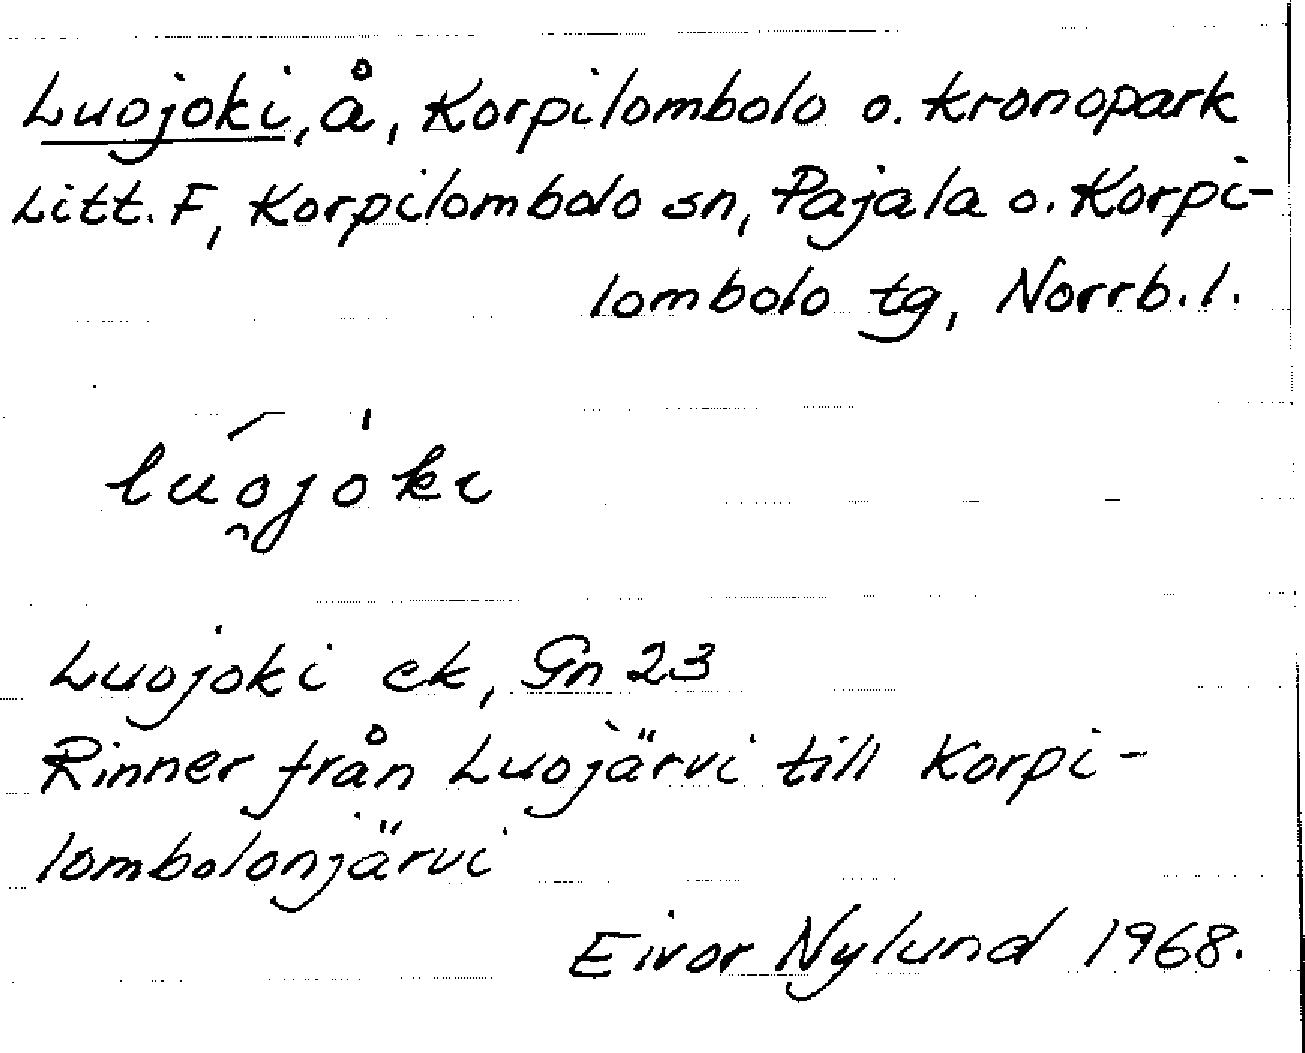 Luojoki, å, Korpilombolo o. kronopark
Litt. F, Korpilombolo sn, Pajala o. Korpi-
lombolo tg, Norrb. l.
luo̯joki
Luojoki ek, Gn 23
Rinner från Luojärvi till Korpi-
lombolonjärvi
Eivor Nylund 1968.